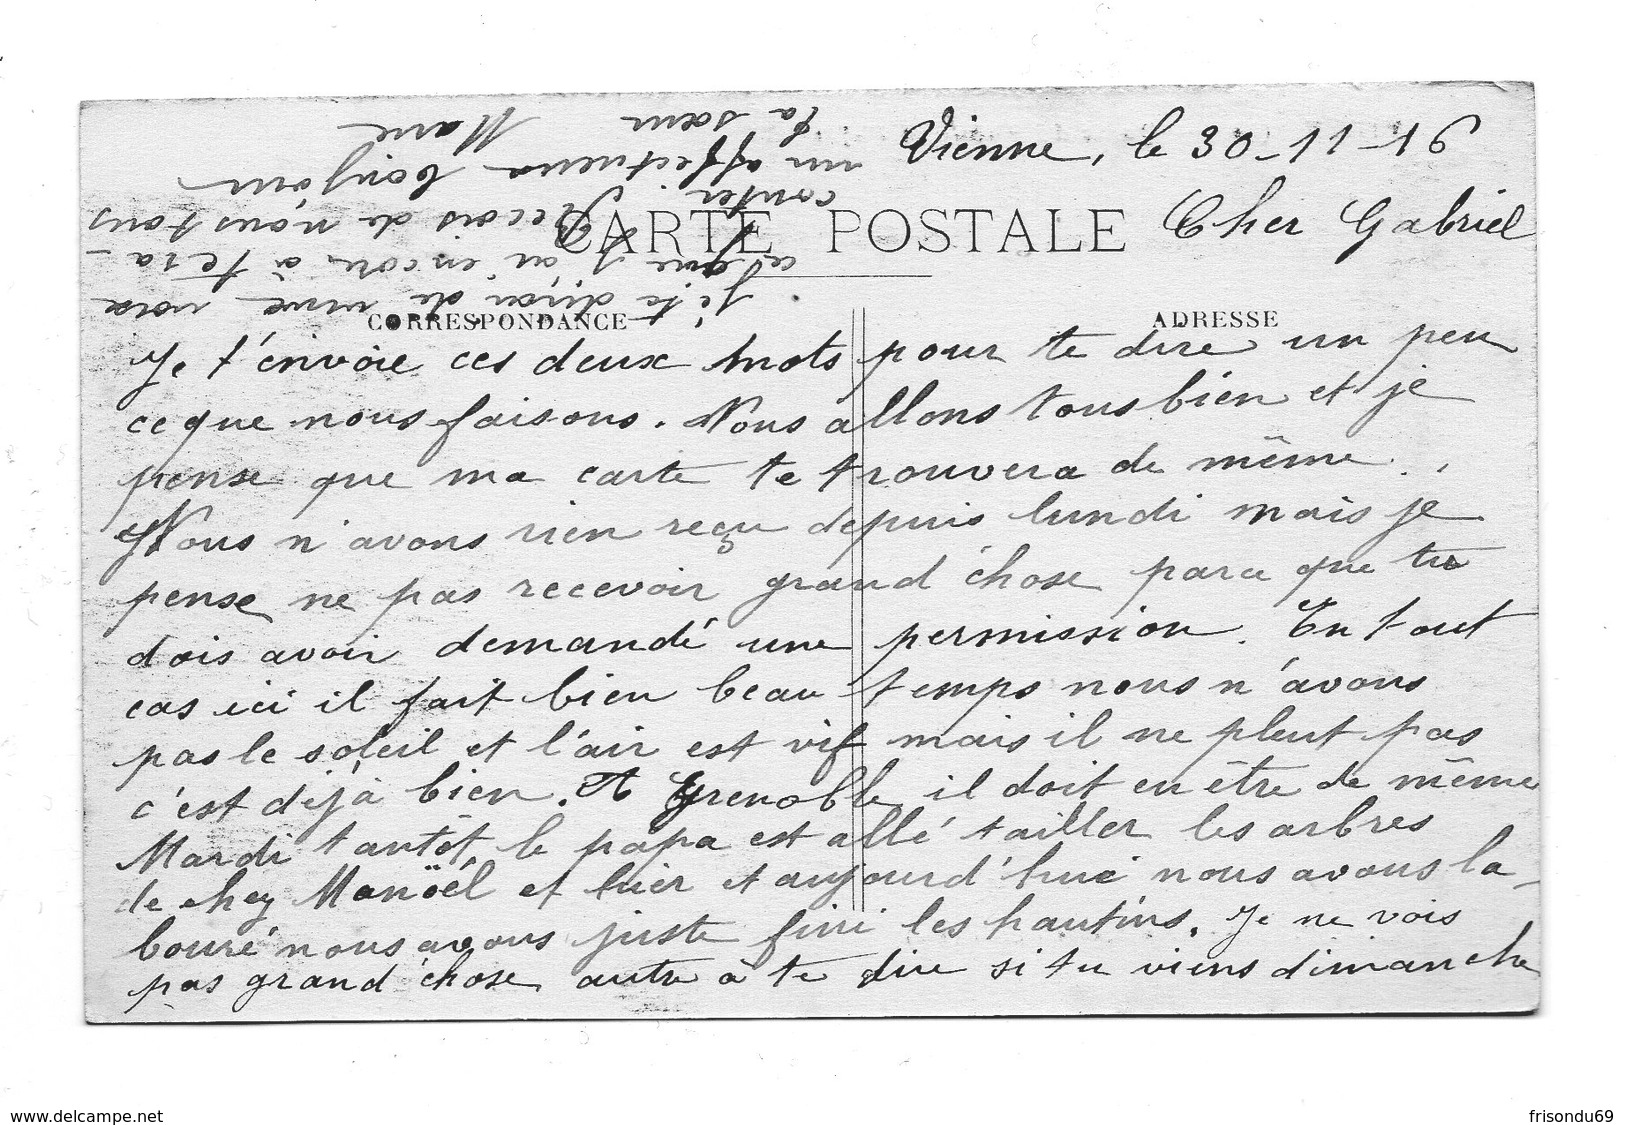 Vienne, le 30-11-16
CARTE POSTALE
Cher Gabriel
CORRESPONDANCE
ADRESSE
Je t'envoie ces deux mots pour te dire un peu
ce que nous faisons. Nous allons tous bien et je
pense que ma carte te trouvera de même.
Nous n'avons rien reçu depuis lundi mais je
pense ne pas recevoir grand'chose parce que tu
dois avoir demandé une permission. En tout
cas ici il fait bien beau temps nous n'avons
pas le soleil et l'air est vif mais il ne pleut pas
c'est déjà bien. A Grenoble il doit en être de même
Mardi tantôt le papa est allé tailler les arbres
de chez Manöél et hier et aujourd'hui nous avons la-
bouré nous avons juste fini les hautins. Je ne vois
pas grand'chose autre à te dire si tu viens dimanche
je te dirai de vive voix
ce que j'ai encore à te ra-
conter. Recois de nous tous
un affectueux bonjour
Ta sœur Marie
www.delcampe.net
frisondu69